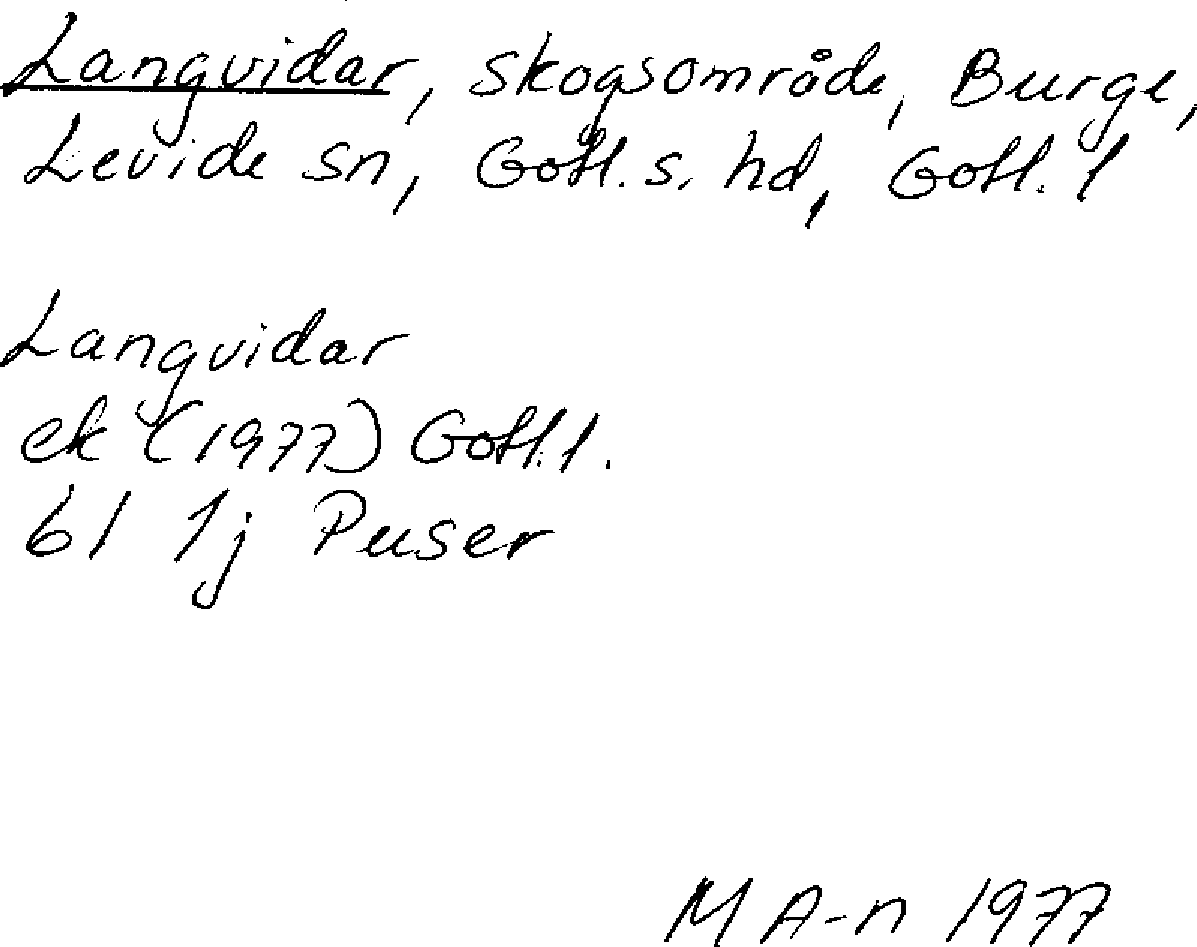 Langvidar, skogsområde, Burge,
Levide sn, Gotl. s. hd, Gotl. l
Langvidar
ek (1977) Gotl. l.
6I 1j Puser
M A-n 1977